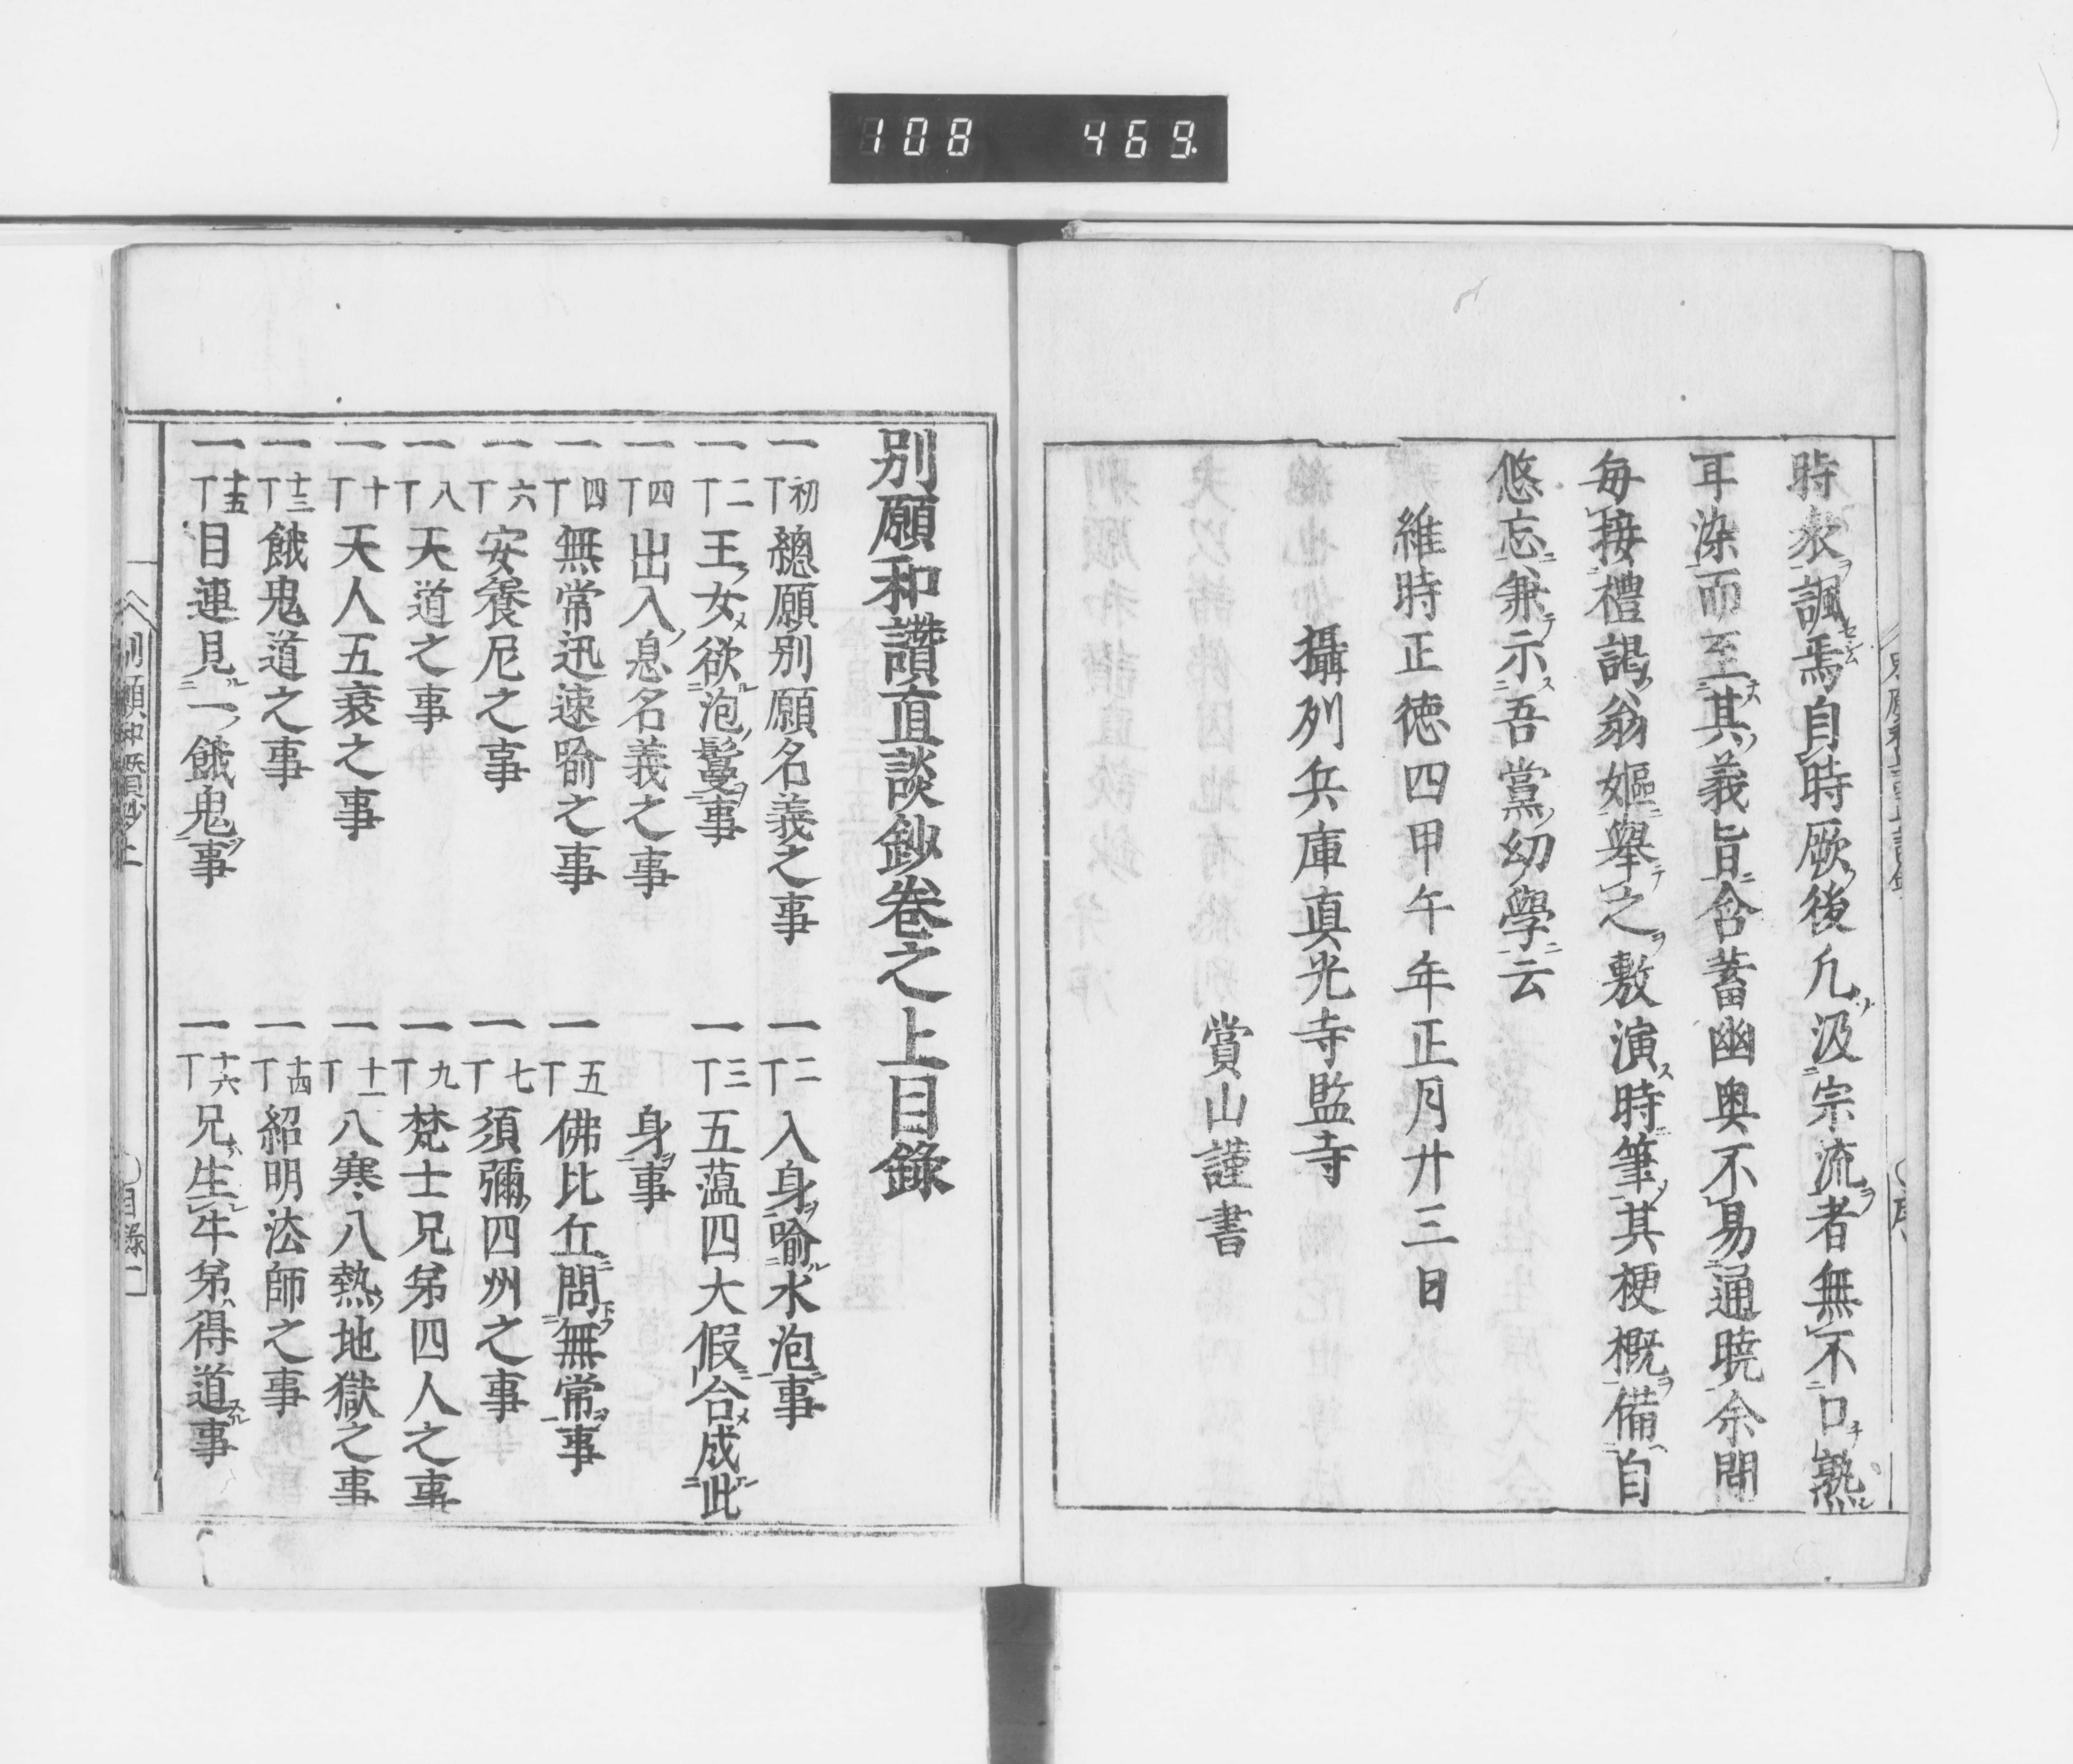 108 469
時衆諷焉自時厥後凢汲宗流者無不口熟
耳染而至其義旨含蓄幽奥不易通曉余間
毎接禮謁翁嫗舉之敷演時筆其梗概備自
悠忘兼示吾黨幼學云
維時正徳四甲午年正月廿三日
攝列兵庫眞光寺監寺
賞山謹書
別願和讚直談鈔卷之上目錄
一初丁總願別願名義之事
一二丁入身喻水泡事
一二丁王女欲泡鬘事
一三丁五蘊四大假合成此
身事
一四丁出入息名義之事
一四丁無常迅速喻之事
一五丁佛比丘問無常事
一六丁安養尼之事
一七丁須彌四州之事
一八丁天道之事
一九丁梵士兄弟四人之事
一十丁天人五衰之事
一十一丁八寒八熱地獄之事
一十三丁餓鬼道之事
一十四丁紹明法師之事
一十五丁目連見一餓鬼事
一十六丁兄生牛弟得道事
別願和讃鈔上 目錄一